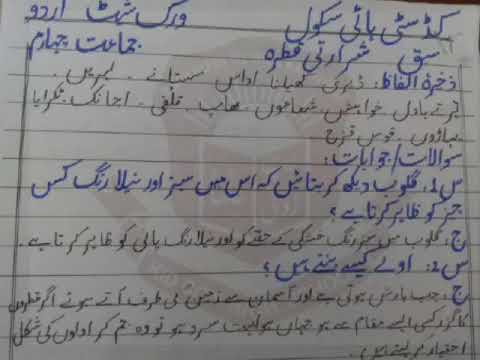 کڈسٹی ہائی سکول ورک شیٹ اردو
سبق شرارتی قطرہ جماعت چہارم
ذخیرۂ الفاظ: ڈیری کھیلنا اداس سستانے ۔ لہریں ۔
تیرتے بادل خواہش شعاعوں بھاپ ۔ قلفی ۔ اچانک ٹکرایا
پہاڑوں ۔ قوس قزح
سوالات / جوابات:
س 1: گلوب دیکھ کر بتائیں کہ اس میں سبز اور نیلا رنگ کس
چیز کو ظاہر کرتا ہے؟
ج: گلوب میں سبز رنگ خشکی کے حصے کو اور نیلا رنگ پانی کو ظاہر کرتا ہے ۔
س 2: اولے کیسے بنتے ہیں؟
ج: جب بارش ہوتی ہے اور آسمان سے زمین کی طرف آتے ہوئے اگر قطروں
کا گزر کسی ایسے مقام سے ہو جہاں ہوا بہت سرد ہو تو وہ جم کر اولوں کی شکل
اختیار کر لیتے ہیں